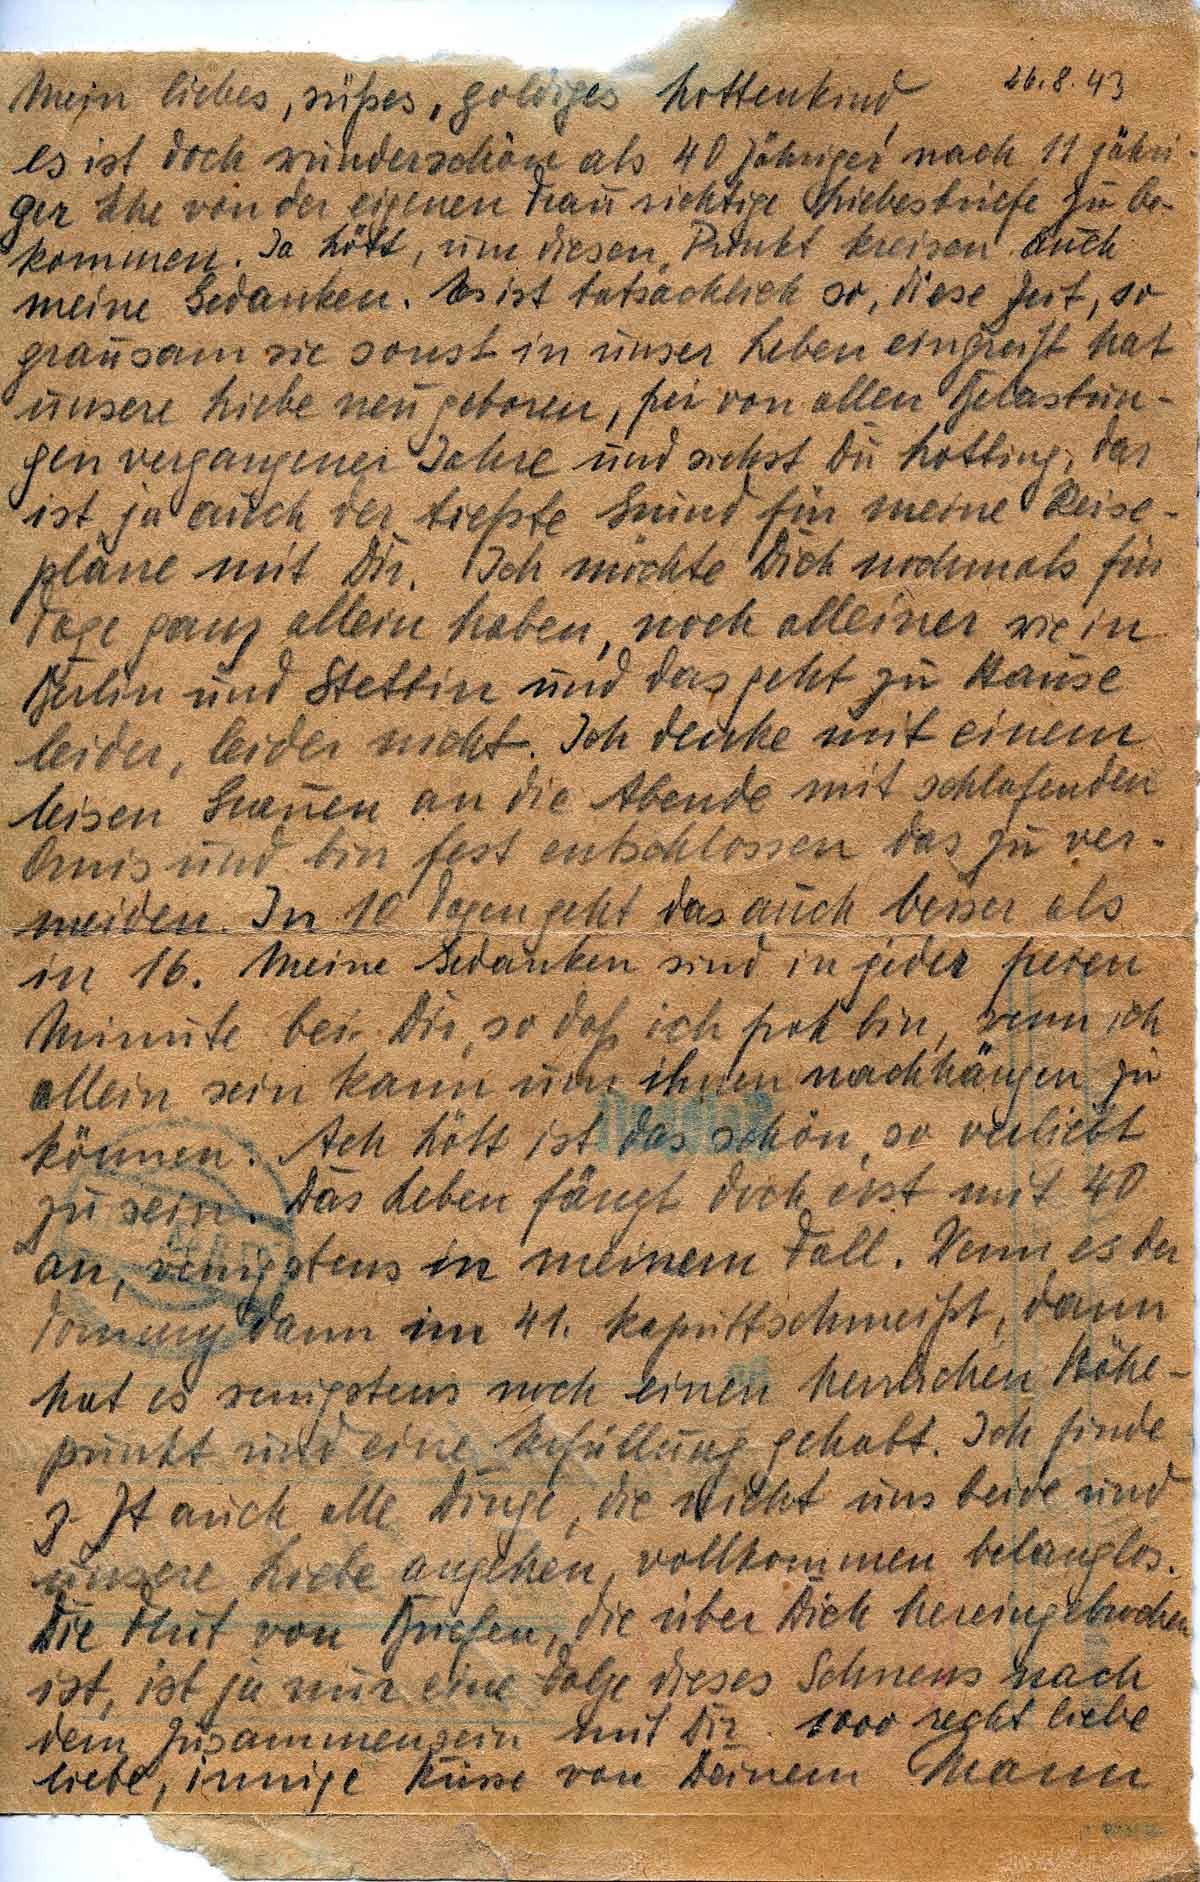 26.8.43
Mein liebes, süßes, goldiges Hottenkind,
es ist doch wunderschön als 40 jähriger nach 11 jähri-
ger Ehe von der eigenen Frau richtige Liebesbriefe zu be-
kommen. Ja Hött, um diesen Punkt kreisen auch
meine Gedanken. Es ist tatsächlich so, diese Zeit, so
grausam sie sonst in unser Leben eingreift hat
unsere Liebe neu geboren, frei von allen Belastun-
gen vergangener Jahre und siehst Du Hotting, das
ist ja auch der tiefste Grund für meine Reise-
pläne mit Dir. Ich möchte Dich nochmals für
Tage ganz allein haben, noch alleiner wie in
Berlin und Stettin und das geht zu Hause
leider, leider nicht. Ich denke mit einem
leisen Grauen an die Abende mit schlafenden
Omis und bin fest entschlossen das zu ver-
meiden. In 10 Tagen geht das auch besser als
in 16. Meine Gedanken sind in jeder freien
Minute bei Dir, so daß ich froh bin, wenn ich
allein sein kann um ihnen nachhängen zu
können. Ach Hött ist das schön, so verliebt
zu sein. Das Leben fängt doch erst mit 40
an, wenigstens in meinem Fall. Wenn es der
Tommy dann im 41. kaputtschmeißt, dann
hat es wenigstens noch einen herrlichen Höhe-
punkt und eine Erfüllung gehabt. Ich finde
z. Zt auch alle Dinge, die nicht uns beide und
unsere Liebe angehen, vollkommen belanglos.
Die Flut von Briefen, die über Dich hereingebrochen
ist, ist ja nur eine Folge dieses Sehnens nach
dem Zusammensein mit Dir. 1000 recht liebe
liebe, innige Küsse von Deinem Mann